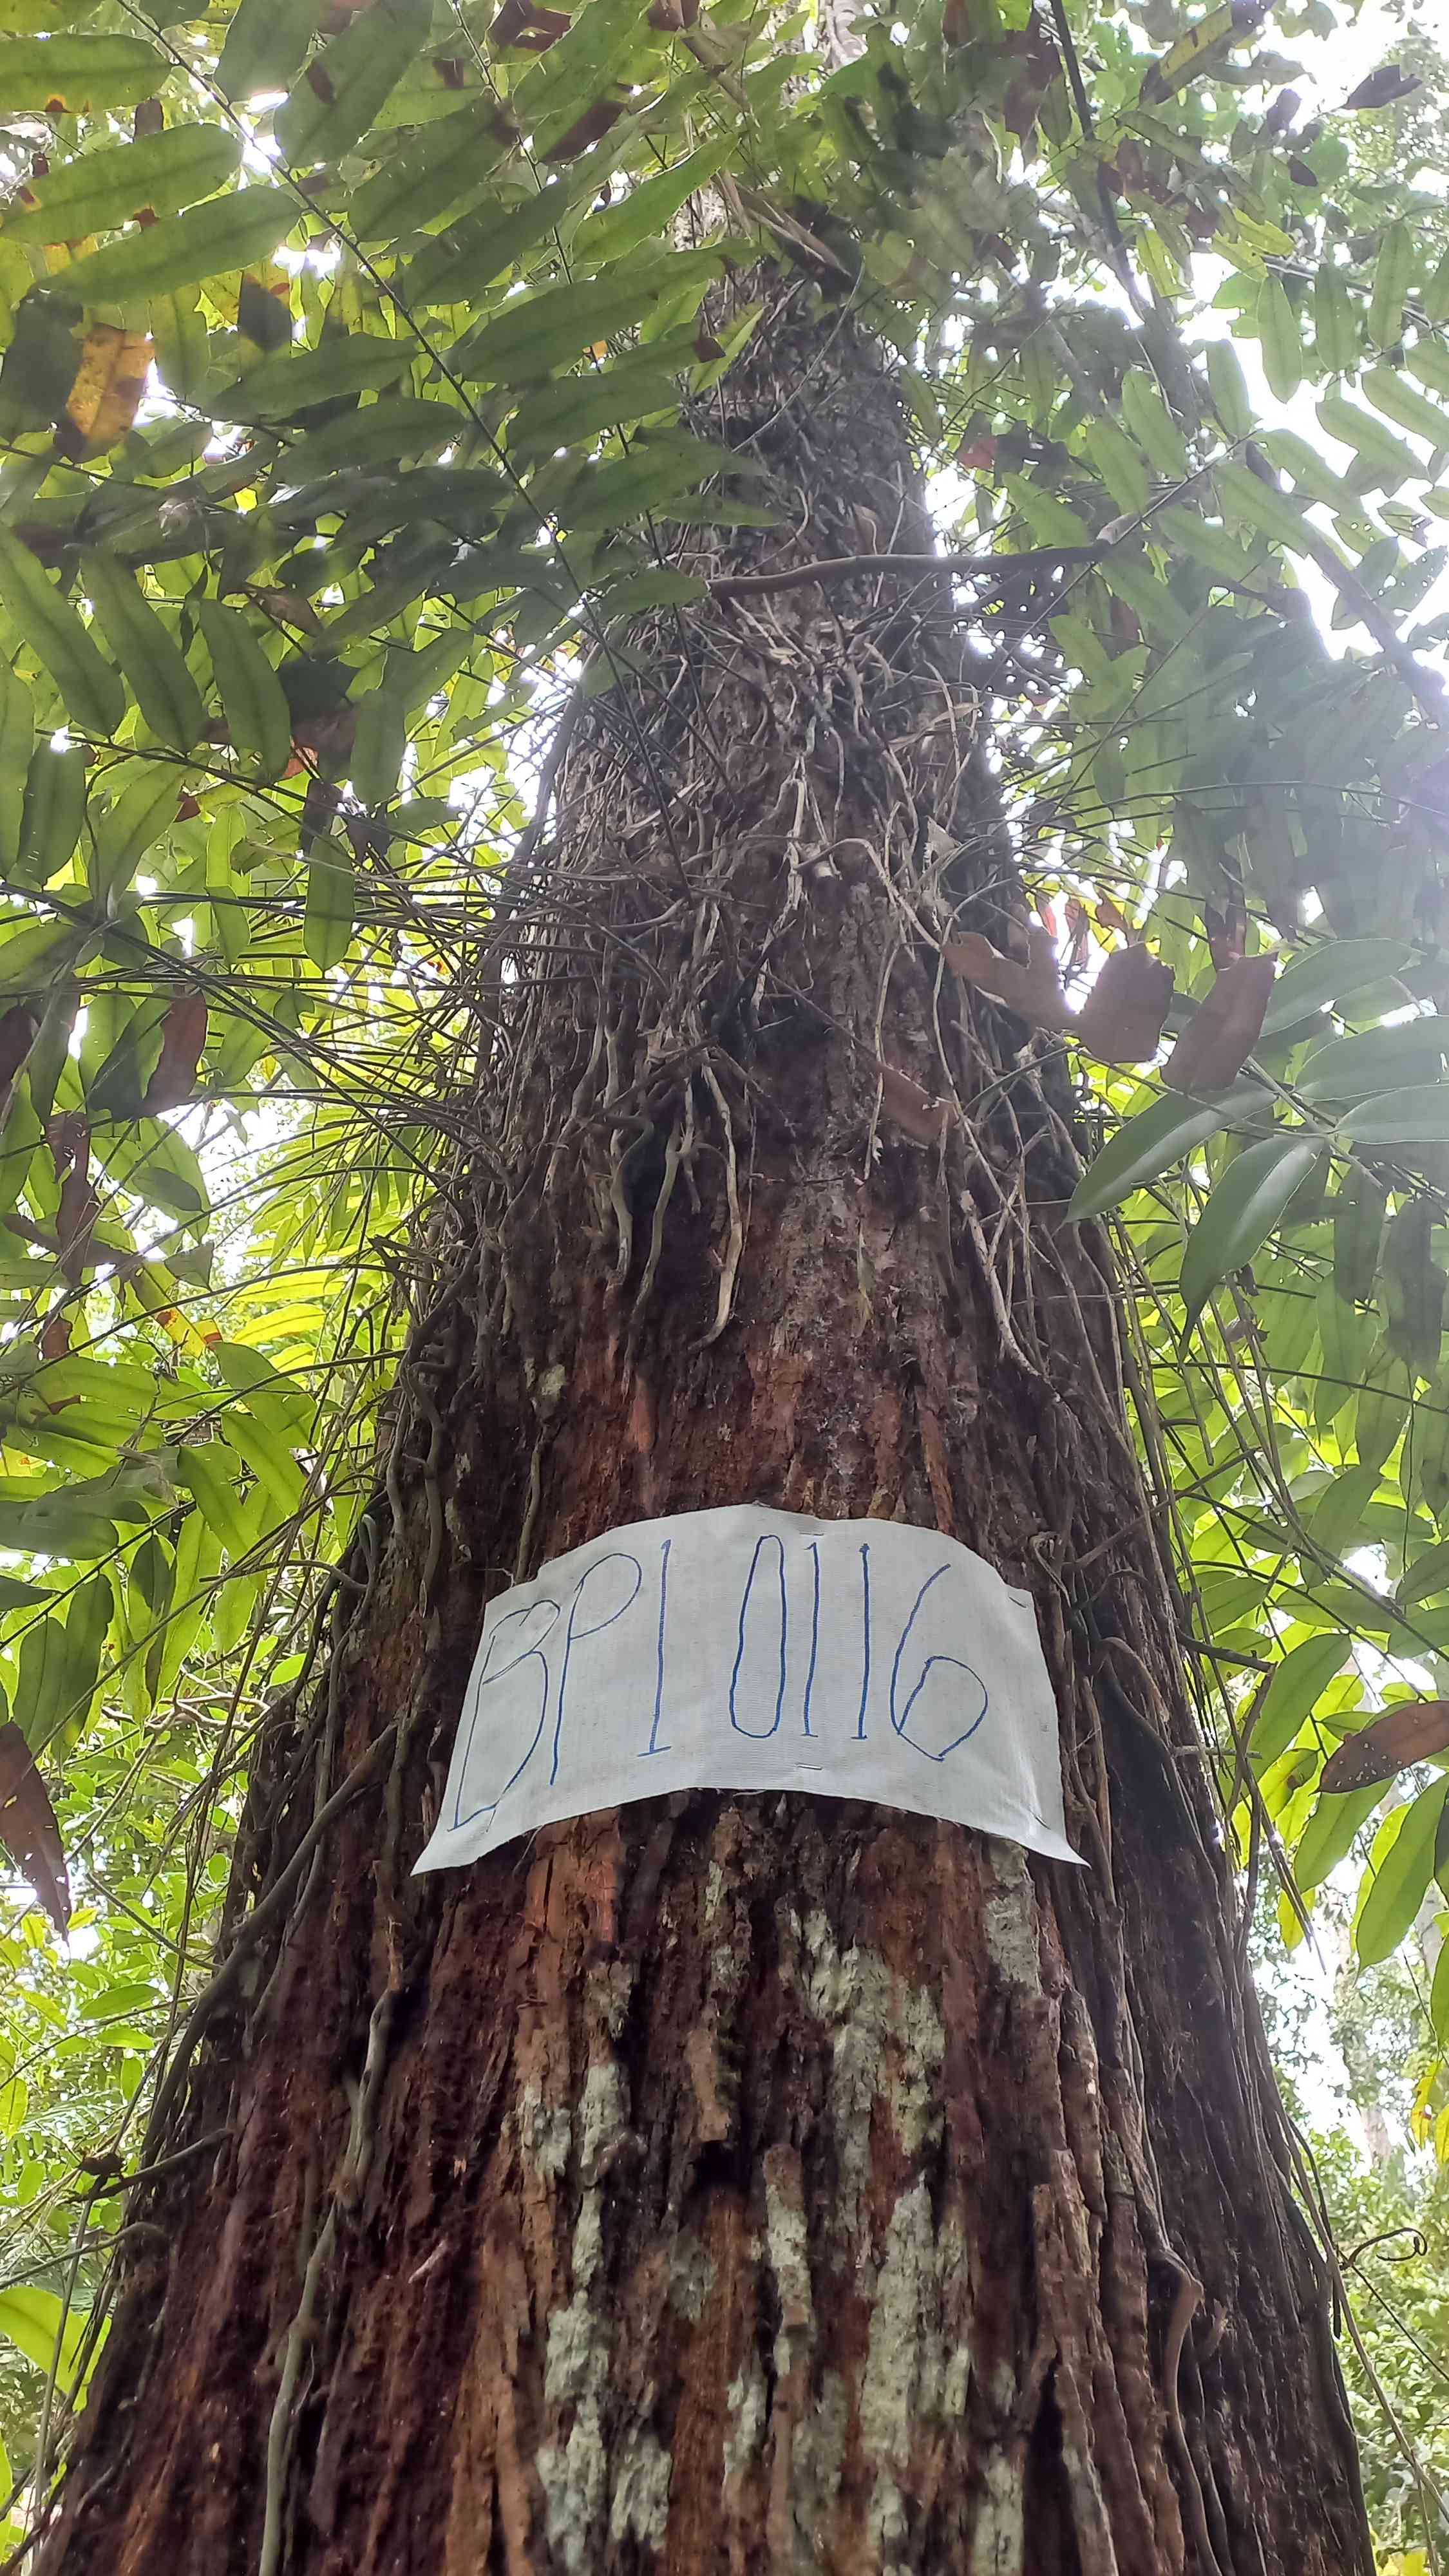 BPI 0116